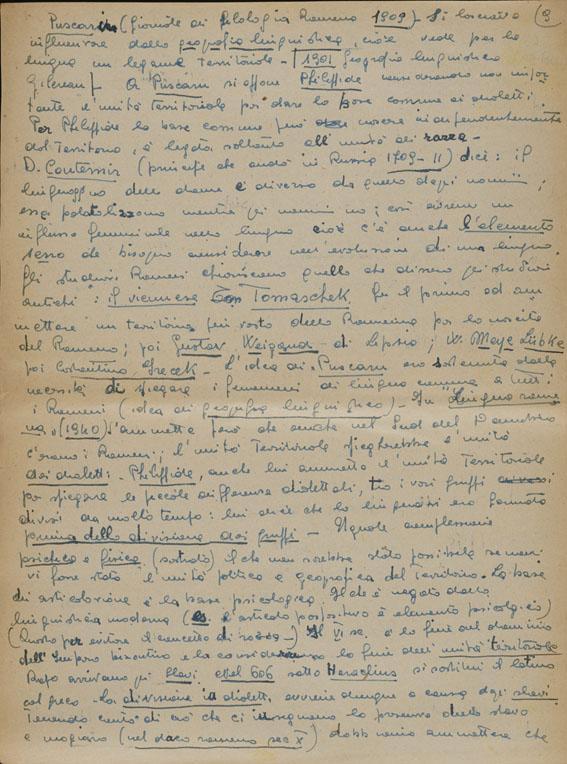 Puscariu (Giornale di filologia Romena 1909) - Si lasciava (9
influenzare dalla geografia linguistica, cioè vede per la
lingua un legame territoriale - [1901 Geografia linguistica
Gilieran]- A Puscariu si oppone Philippide considerando non impor
tante l'unità territoriale per dare la base comune ai dialetti.
Per Philippide la base comune può nascere indipendentemente
dal territorio, è legata soltanto all'unità di razza -
D. Contessir (principe che andò in Russia 1709-11) dici: il
linguaggio delle donne è diverso da quello degli uomini;
esse palatalizzano mentre gli uomini no; così avremo un
influsso femminile nella lingua cioè c'è anche l'elemento
sesso da bisogna considerare nell'evoluzione di una lingua.
Gli studiosi Romeni chiariscono quello che dissero gli studiosi
antichi: il viennese Tomaschek fu il primo ad am
mettere un territorio più vasto della Romania per la nascita
del Romeno; poi Gustav Weigand di Lipsia; W. Meye Lübke
poi Costantino Jrecek - L'idea di Puscariu era sostenuta dalla
necessità di spiegare i fenomeni di lingua comuni a tutti
i Romeni (idea di geografia linguistica) - In Lingua rome
na, (1940) s'ammette però che anche nel Sud del Danubio
c'erano i Romeni; l'unità territoriale spiegherebbe l'unità
dei dialetti. Philippide, anche lui ammette l'unità territoriale
per spiegare le piccole differenze dialettali, tra i vari gruppi
divisi da molto tempo: lui dice che la lingua si era formata
prima della divisione dei gruppi - Uguale complessione
psichica e fisica (sostrato) il che non sarebbe stato possibile se non
vi fosse stata l'unità politica e geografica del territorio. La base
di articolazione è la base psicologica. Il che è negato dalla
linguistica moderna (es. l'articolo pospositivo è elemento psicologico)
(Questo per evitare il concetto di razza -) Il VI se. è la fine del dominio
dell'Impero bizantino e la fine dell'unità territoriale
Dopo arrivano gli slavi. Nel 606 sotto Heraclius si sostituì il latino
col greco - La divisione in dialetti avviene dunque a causa degli slavi
Tenendo conto di ciò che ci insegnano la presenza dello slavo
e magiaro (nel daco romeno sec X) dobbiamo ammettere che